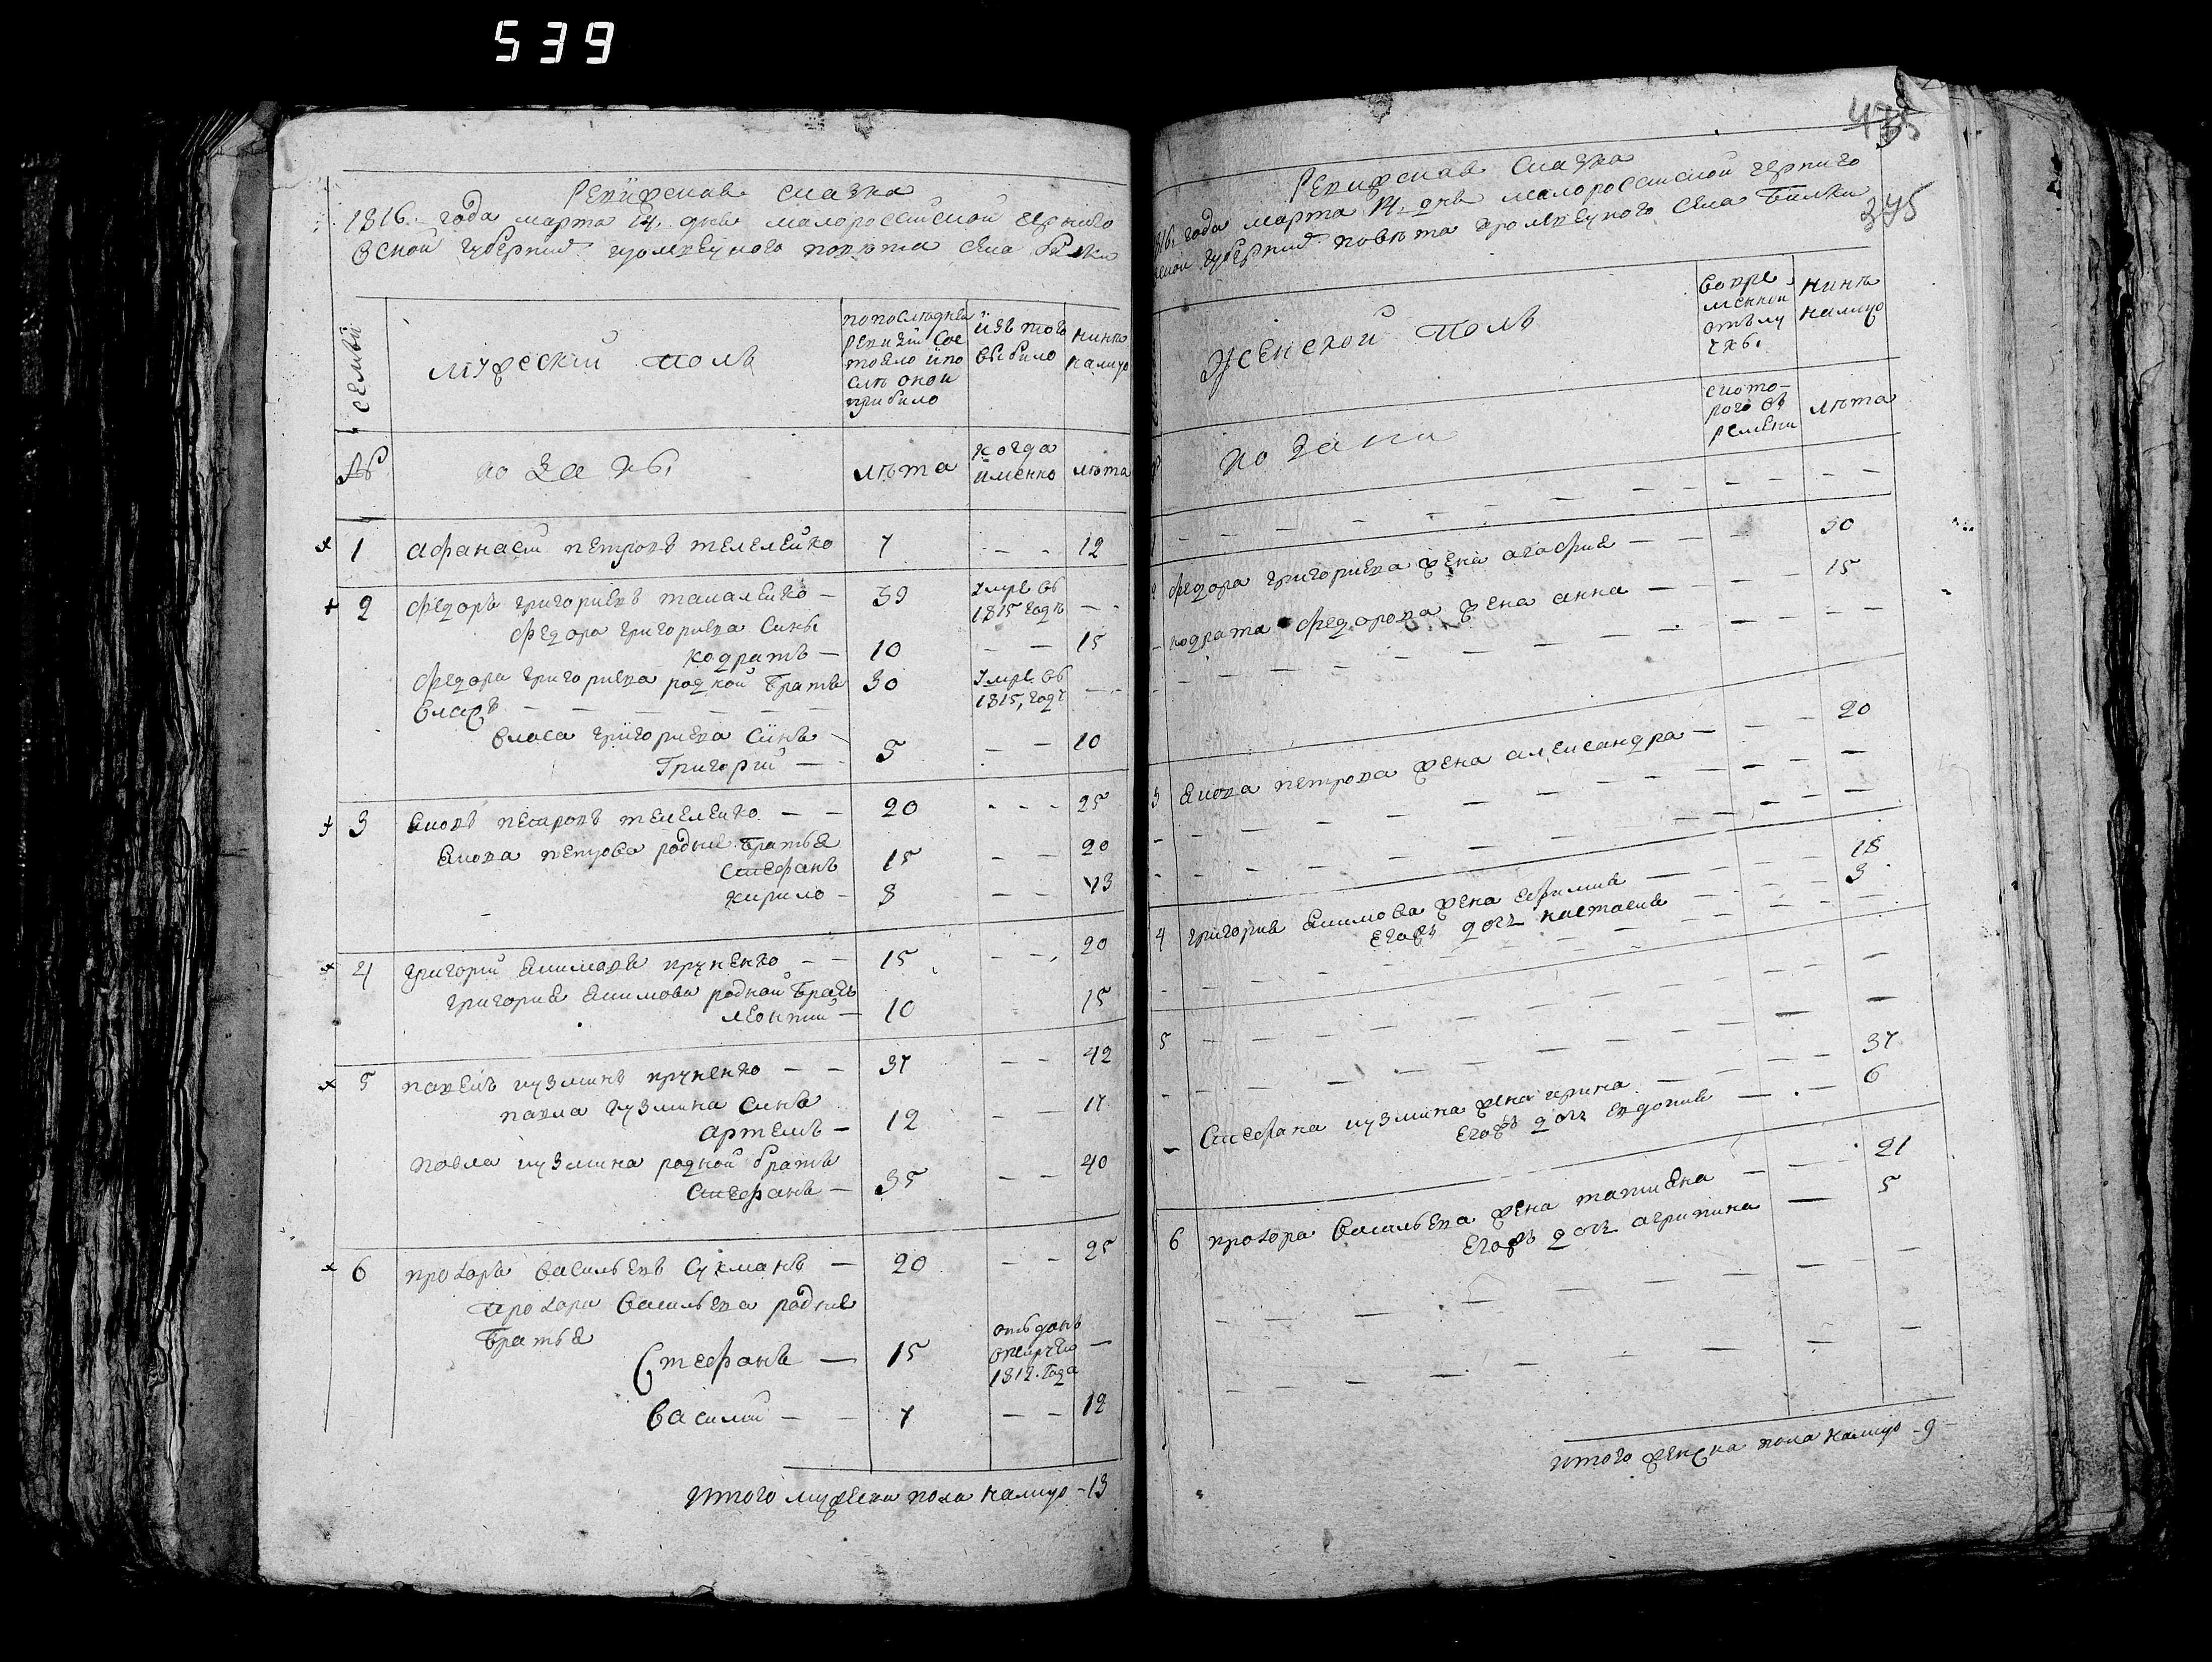 539
Ревижская сказка
1816. года марта 14. дня малоросcийской черниго
вской губернии кролевецкого повета села Билки
семьи
мужеский полъ
по последней
ревизии сос
тояло и по
сле оной
прибыло
изъ того
выбыло
ныне
налицо
№
козаки
лета
когда
именно
лета
1 афанасий петровъ телелейко 7 - - 12
2 федоръ григориевъ талалейко — 39 Умре въ 1815 годе - -
федора григориева сынъ
кодратъ — 10 - - 15
федора григориева родной братъ 30 Умре въ 1815, годе - -
власъ — — — — — —
власа григориева сынъ —
Григорий — 5 - - 10
3 яковъ петровъ телелейко — — 20 - - - 25
якова петрова родние братья
стефанъ 15 - - 20
кирило — 8 - - 13
4 григорий якимовъ пруненко — — 15 - - 20
григория якимова родной братъ
леонтий — 10 15
5 павелъ кузминъ пруненко — — 37 - - 42
павла кузмина сынъ
артемъ — 12 - - 17
павла кузмина родной братъ
стефанъ — 35 - - 40
6 прохоръ васильевъ сукманъ — 20 - - 25
прохора васильева родние
братья
Стефанъ — 15 отъданъ
1812. года —
василий — — 7 - - 12
Итого мужеска пола налицо - 13
435
375
Ревижская сказка
1816. года марта 14. дня малоросcийской черниго
вской губернии повета кролевецкого села Билки
женской полъ
во вре
менной
отълу
чкы
ныне
налицо
козаки
с кото-
рого въ
ремени
лета
2 федора григориева жена агафия — — - 30
кодрата федорова жена анна — — - 15
3 якова петрова жена александра — — - 20
4 григория якимова жена ефимия — — - 18
егожъ дочь настасия — — - 3
5 — — — — — —
стефана кузмина жена ирина — — - 37
егожъ дочь евдокия — - - 6
6 прохора васильева жена татияна — - - 21
егожъ дочь агрипина — 5
Итого женска пола налицо - 9